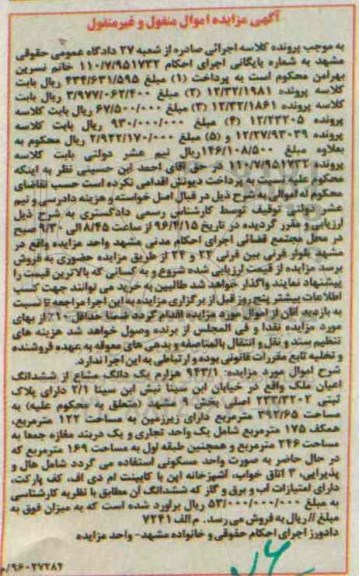 آگهی مزایده اموال منقول و غیرمنقول
به موجب پرونده کلاسه اجرائی صادره از شعبه ۲۷ دادگاه عمومی حقوقی
مشهد به شماره بایگانی اجرای احکام ۱۱۰/۷/۹۵۱۷۳۲ خانم نسرین
بهرامن محکوم است به پرداخت (۱) مبلغ ۴۳۴/۶۳۱/۵۹۵ ریال بابت
کلاسه پرونده ۱۲/۳۲/۱۹۸۱ (۲) مبلغ ۳/۹۷۷/۰۶۲/۴۰۰ ریال بابت
کلاسه پرونده ۱۲/۳۲/۱۸۶۱ (۳) مبلغ ۶۷/۵۰۰/۰۰۰ ریال بابت
پرونده ۱۲/۲۳۲۰۵ (۴) مبلغ ۹۳۰/۰۰۰/۰۰۰ ریال بابت کلاسه
پرونده ۱۲/۲۷/۹۳۰۳۹ و (۵) مبلغ ۲/۹۲۲/۱۷۰/۰۰۰ ریال محکوم به
بعلاوه مبلغ ۱۴۶/۱۰۸/۵۰۰ ریال نیم عشر دولتی بابت کلاسه
پرونده ۱۱۰/۷/۹۵۱۷۳۲ در حق آقای احمد ابن حسینی نظر به اینکه
محکوم علیه نسبت به پرداخت دیونش اقدامی نکرده است حسب تقاضای
محکوم له اموالی به شرح ذیل در قبال اصل خواسته و هزینه دادرسی و نیم
عشر دولتی توقیف توسط کارشناس رسمی دادگستری به شرح ذیل
ارزیابی و مقرر گردیده در تاریخ ۹۶/۴/۱۵ از ساعت ۸/۴۵ الی ۹/۳۰ صبح
در محل مجتمع قضائی اجرای احکام مدنی مشهد واحد مزایده واقع در
مشهد بلوار قرنی بین قرنی ۲۲ و ۲۴ از طریق مزایده حضوری به فروش
برسد مزایده از قیمت ارزیابی شده شروع و به کسانی که بالاترین قیمت را
پیشنهاد نمایند واگذار خواهد شد طالبین به خرید می توانند جهت کسب
اطلاعات بیشتر پنج روز قبل از برگزاری مزایده به این اجرا مراجعه تا نسبت
به بازدید آنان از اموال مورد مزایده اقدام گردد ضمنا حداقل ۱۰٪ از بهای
مورد مزایده نقدا و فی المجلس از برنده وصول خواهد شد هزینه های
تنظیم سند و نقل و انتقال بالمناصفه و بدهی های معوقه به عهده فروشنده
و تخلیه تابع مقررات قانونی بوده و ارتباطی به این اجرا ندارد.
شرح اموال مورد مزایده: ۹۴۳/۱ هزارم یک دانگ مشاع از ششدانگ
اعیان ملک واقع در خیابان ابن سینا نبش ابن سینا ۲/۱ دارای پلاک
ثبتی ۲۳۳/۳۲۰۲ اصلی بخش ۹ مشهد (متعلق به محکوم علیه) به
مساحت ۳۹۲/۶۵ مترمربع دارای زیرزمین به مساحت ۱۲۲ مترمربع،
همکف ۱۷۵ مترمربع شامل یک واحد تجاری و یک دربند مغازه جمعا به
مساحت ۲۴۶ مترمربع و همچنین طبقه اول به مساحت ۱۶۹ مترمربع که
در حال حاضر به صورت واحد مسکونی استفاده می گردد شامل هال و
پذیرایی، ۳ اتاق خواب، آشپزخانه اپن با کابینت ام دی اف، کف پارکت،
دارای امتیازات آب و برق و گاز که ششدانگ آن مطابق با نظریه کارشناسی
به مبلغ ۵۳/۰۰۰/۰۰۰/۰۰۰ ریال برآورد شده است که به میزان فوق به
مبلغ // ریال به فروش می رسد. م الف ۷۲۴۱
دادورز اجرای احکام حقوقی و خانواده مشهد - واحد مزایده
/۹۶۰۲۷۲۸۴